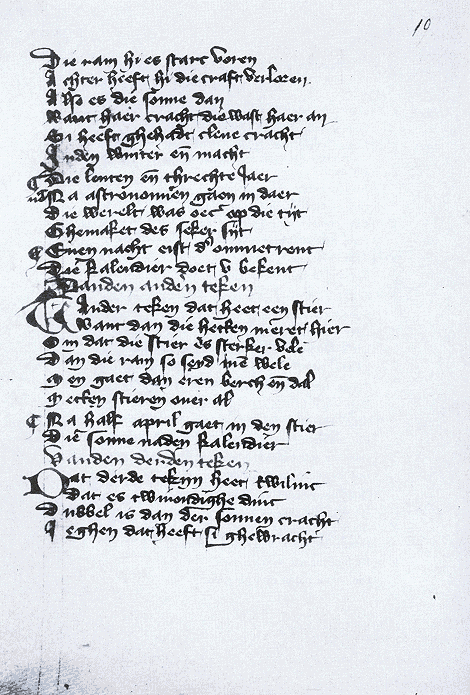 10
Die ram hi es starc voren
Achter heeft hi die craft verloren
Also es die sonne dan
Want haer cracht die wast haer an
En heeft ghehadt clene cracht
Inden winter en macht
Die lenten en threchte jaer
Na astronomien gaen in daer
Die werelt was oec op die tijt
Ghemaket des seker sijt
Euen nacht eist omme trent
Die kalendier doet v bekent
Vanden anderen teken
Ander teken dat heet een stier
Want dan die hetten meret hier
Om dat die stier es sterker vele
Dan die ram so send men wele
Men gaet dan eren berch en dal
Metten stieren ouer al
Na half april gaet in den stier
Die sonne naden kalendier
Vanden derden teken
Dat derde tekijn heet twilinc
Dat es twivoudighe dinc
Dubbel is dan der sonnen cracht
Jeghen dat heeft si ghewracht